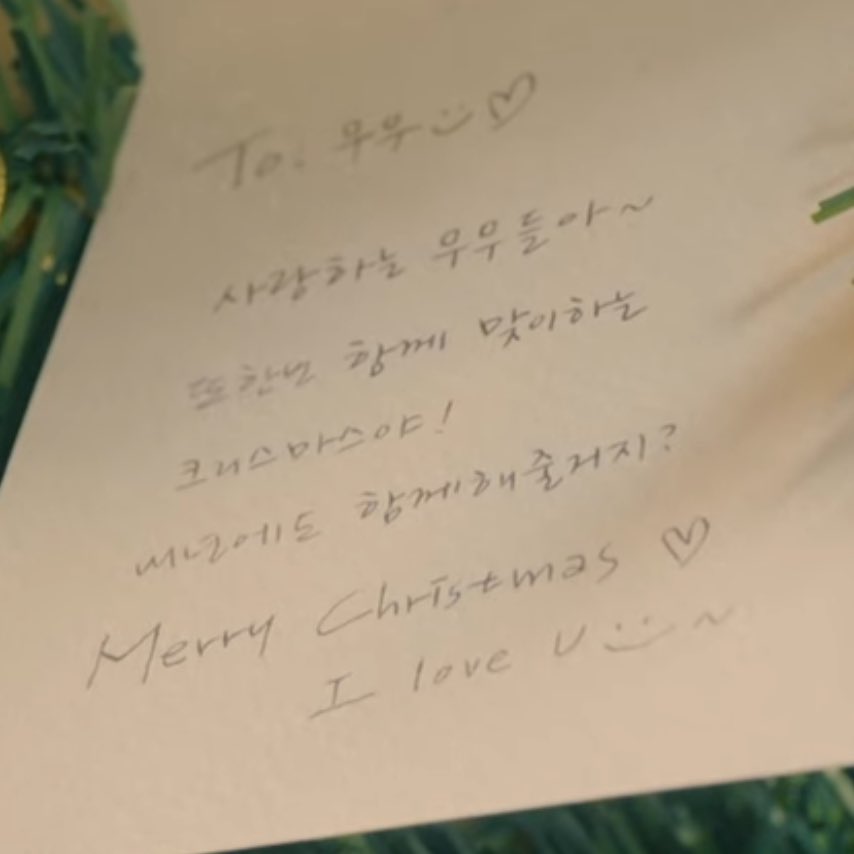 To. 우우 ♡
사랑하는 우우들아~
또한번 함께 맞이하는
크리스마스야!
내년에도 함께해줄거지?
Merry Christmas ♡
I love U ~